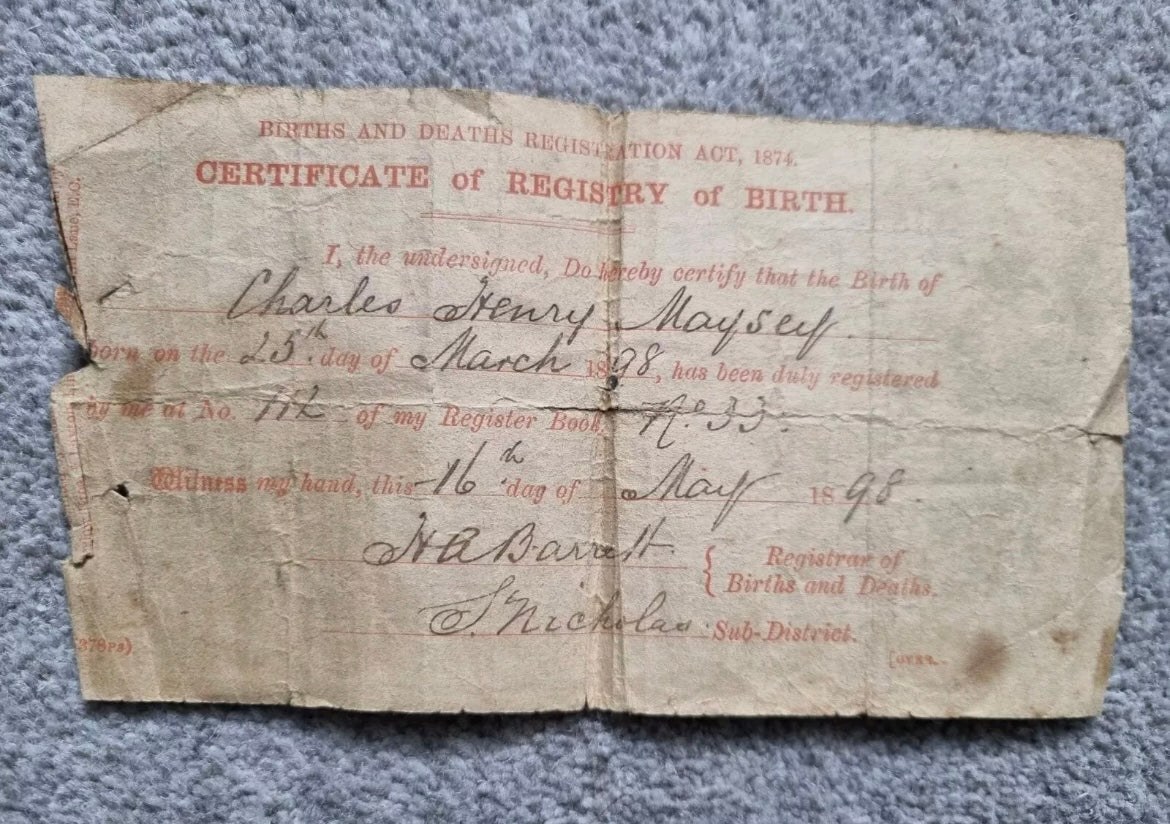 BIRTHS AND DEATHS REGISTRATION ACT, 1874.
CERTIFICATE of REGISTRY of BIRTH.
I, the undersigned, Do hereby certify that the Birth of
Charles Henry Maysey
born on the 25th day of March 1898, has been duly registered
by me at No. 112 of my Register Book, No. 33.
Witness my hand, this 16th day of May 1898
H A Barrett { Registrar of
Births and Deaths.
St Nicholas Sub-District.
378PS)
[OVER.
Lane, E.C.